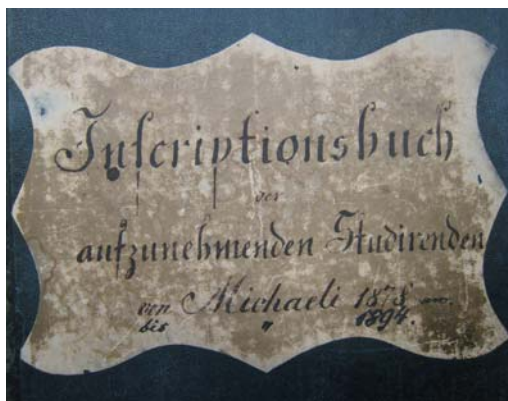 Inscriptionsbuch
der
aufzunehmenden Studirenden
von Michaeli 1878
bis " 1894.